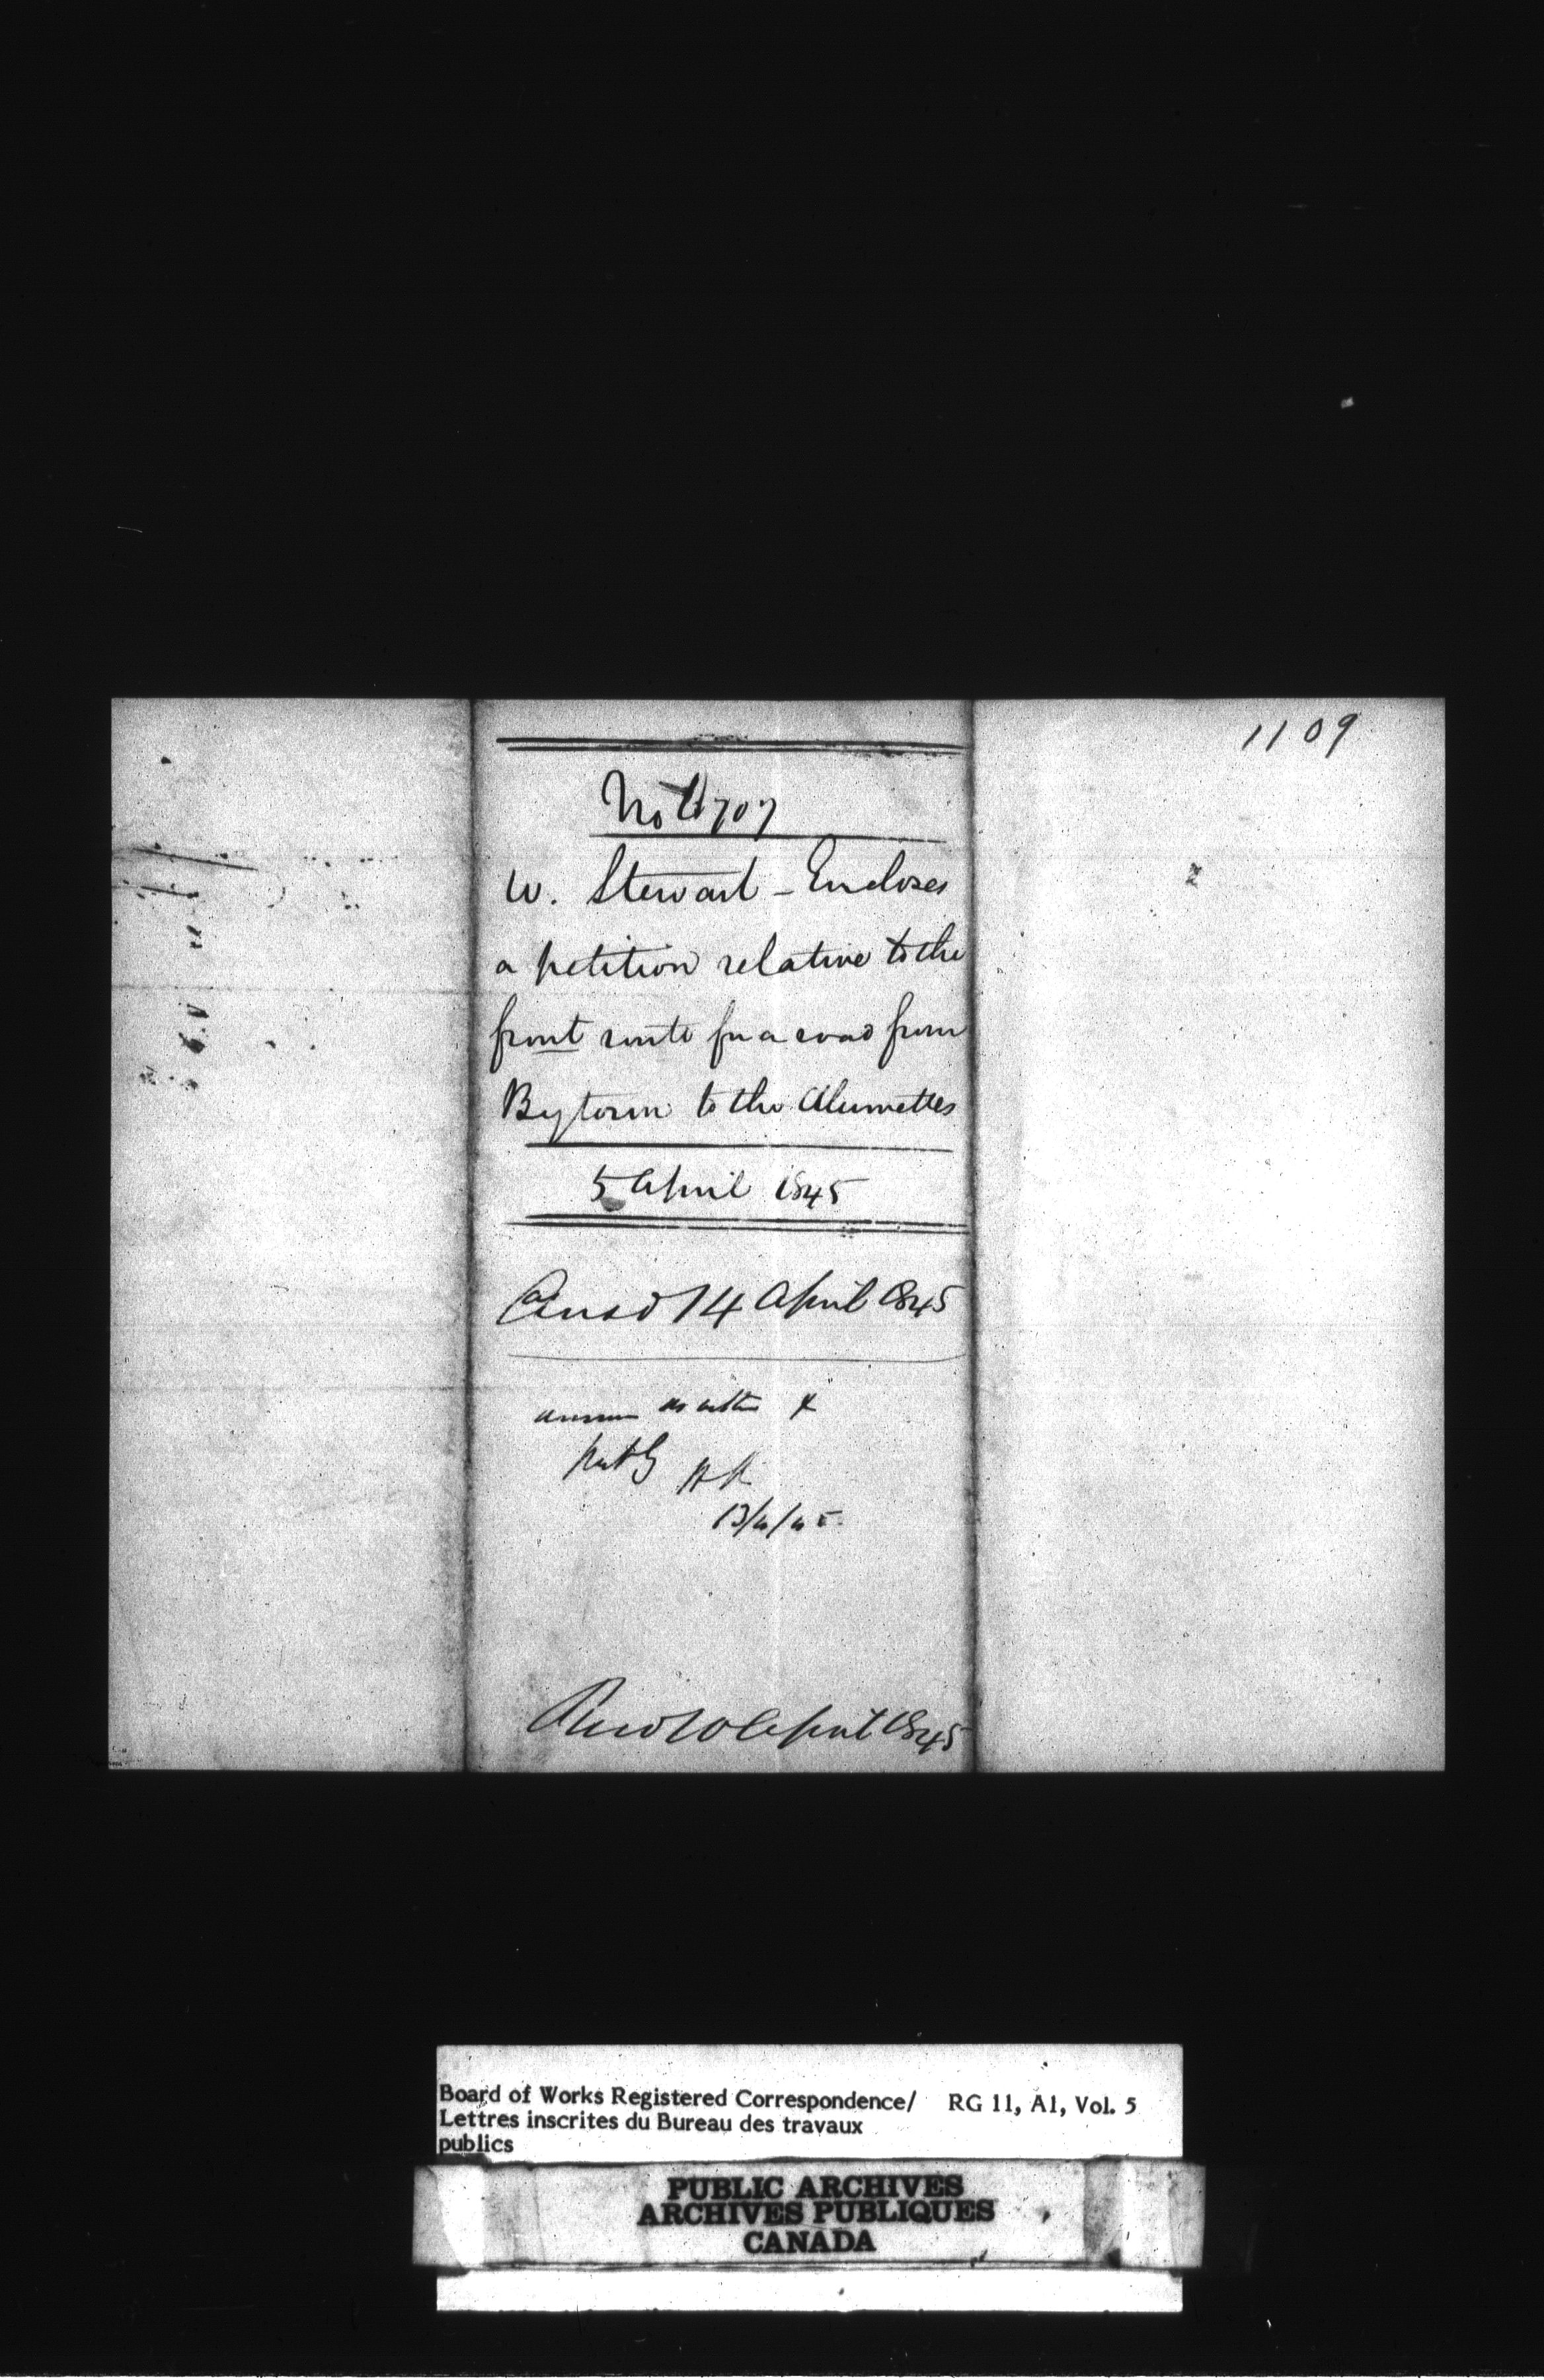 1109
W. Stewart - Encloses
a petition relative to the
front route for a road from
Bytown to the Alumettes
5 April 1845
Ansd 14 April 1845
13/4/45
Recd 10 April 1845
Board of Works Registered Correspondence/ RG 11, A1, Vol. 5
Lettres inscrites du Bureau des travaux
publics
PUBLIC ARCHIVES
ARCHIVES PUBLIQUES
CANADA